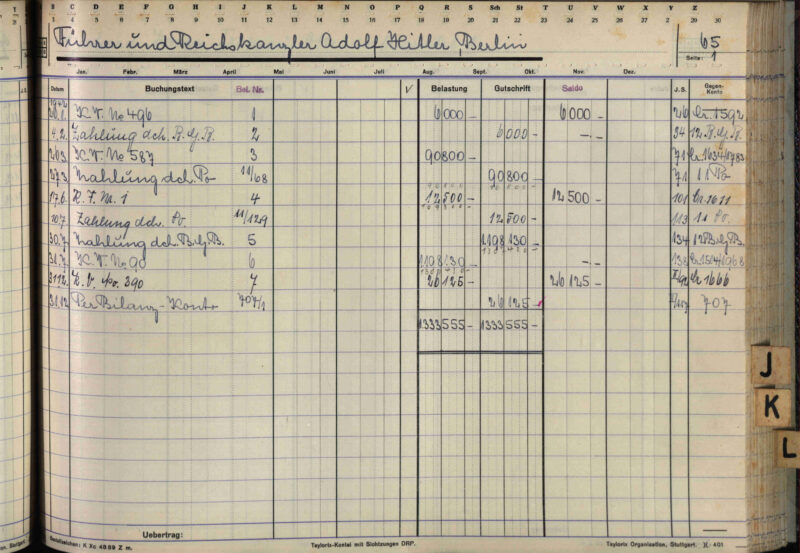 B C D E F G H J K L M N O P Q R Sch St T U V W Z
1 3 4 5 6 7 8 9 10 11 12 13 14 15 16 17 18 19 20 21 22 23 24 25 26 27 28 29 30
Führer und Reichskanzler Adolf Hitler, Berlin
65
Seite: 1
Jan. Febr. März April Mai Juni Juli Aug. Sept. Okt. Nov. Dez.
Datum Buchungstext Bel. Nr. V Belastung Gutschrift Saldo J.S. Gegen-Konto
1942
20.1. K.V. No 496 1 6000 - 6000 - 26 Cr. 1592
4.2. Zahlung dch. B.g.B. 2 6000 - -.- 34 12 B.g.B.
20.3. K.V. No 587 3 90800 - 71
27.3. Zahlung dch. Po 11/68 90800 - 71 11 Po
17.6. K.F. Nr. 1 4 12500 - 12500 - 101 Cr. 1611
10.7. Zahlung dch. Po. 11/129 12500 - 113 11 Po.
30.7. Zahlung dch. B.g.B. 5 1198130 - 134 12 B.g.B.
31.7. K.V. No 90 6 1198130 - -.- 138
31.12. K.V. No. 390 7 26125 - 26125 - Cr. 1666
31.12. Per Bilanz-Konto 707/1 26125 - 707
1333555 - 1333555 -
J
K
L
Uebertrag:
Bestellzeichen: K Xc 49.69 Z m.
Taylorix-Kontei mit Sichtzungen DRP.
Taylorix Organisation, Stuttgart. H 401